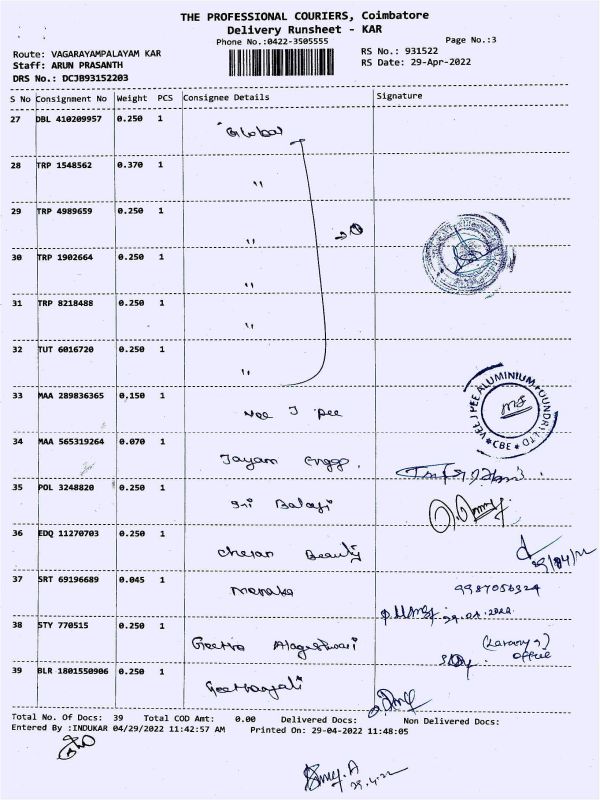 THE PROFESSIONAL COURIERS, Coimbatore
Delivery Runsheet - KAR
Phone No.:0422-3505555
Page No.:3
Route: VAGARAYAMPALAYAM KAR
RS No.: 931522
Staff: ARUN PRASANTH
RS Date: 29-Apr-2022
DRS No.: DCJB93152203
S No Consignment No Weight PCS Consignee Details Signature
27 DBL 410209957 0.250 1 Global
28 TRP 1548562 0.370 1 "
29 TRP 4989659 0.250 1 "
30 TRP 1902664 0.250 1 "
31 TRP 8218488 0.250 1 "
32 TUT 6016720 0.250 1 "
33 MAA 289836365 0.150 1 Vee J Pee
VEEJPEE ALUMINIUM FOUNDRY LTD * CBE *
34 MAA 565319264 0.070 1 Jayam Engg.
35 POL 3248820 0.250 1 Sri Balaji
36 EDQ 11270703 0.250 1 Cheran Beauty
29/04/22
37 SRT 69196689 0.045 1 Menaka 9987056324
29.04.2022
38 STY 770515 0.250 1 Geetha Alageshwari
office
39 BLR 1801550906 0.250 1 Geethanjali
Total No. Of Docs: 39 Total COD Amt: 0.00 Delivered Docs: Non Delivered Docs:
Entered By :INDUKAR 04/29/2022 11:42:57 AM Printed On: 29-04-2022 11:48:05
29.4.22